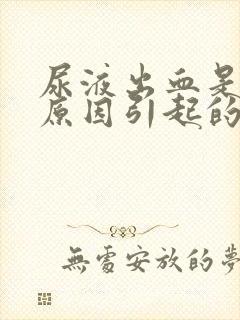 尿液出血是
原因引起的
無處安放的夢